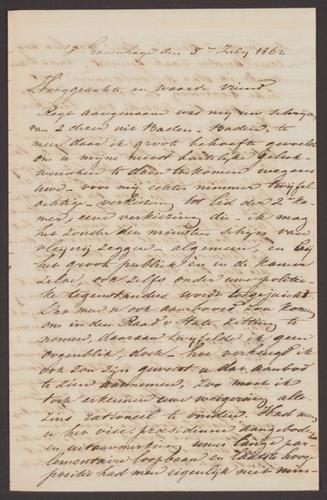 's Gravenhage den 5en July 1862
Hooggeachte en waarde vriend
Regt aangenaam was mij uw schrijven
van 2 dezer uit Baden-Baden, te
meer daar ik groote behoefte gevoelde
om u mijne meest hartelijke geluk-
wenschen te doen toekomen wegens
uwe - voor mij echter nimmer twijfel-
achtige - verkiezing tot lid der 2e Ka-
mer, eene verkiezing die - ik mag
het zonder den minsten schijn van
vleijerij zeggen - algemeen, en bij
het groote publiek en in de Kamer
zelve, ook zelfs onder uwe politie-
ke tegenstanders wordt toegejuicht.
Dat men u ook aanbood zou komen
om in den Raad v State zitting te
nemen, daaraan twijfelde ik geen
oogenblik, doch - hoe verheugd ik
ook zou zijn geweest u dat aanbod
te zien aannemen, zoo moet ik
ook erkennen uwe weigering alle-
zins rationeel te vinden. Had men
u het vice-presidium aangeboden
en uitaanmerking uwer lange par-
lementaire loopbaan en laatste hooge
positie had men eigenlijk niet min-